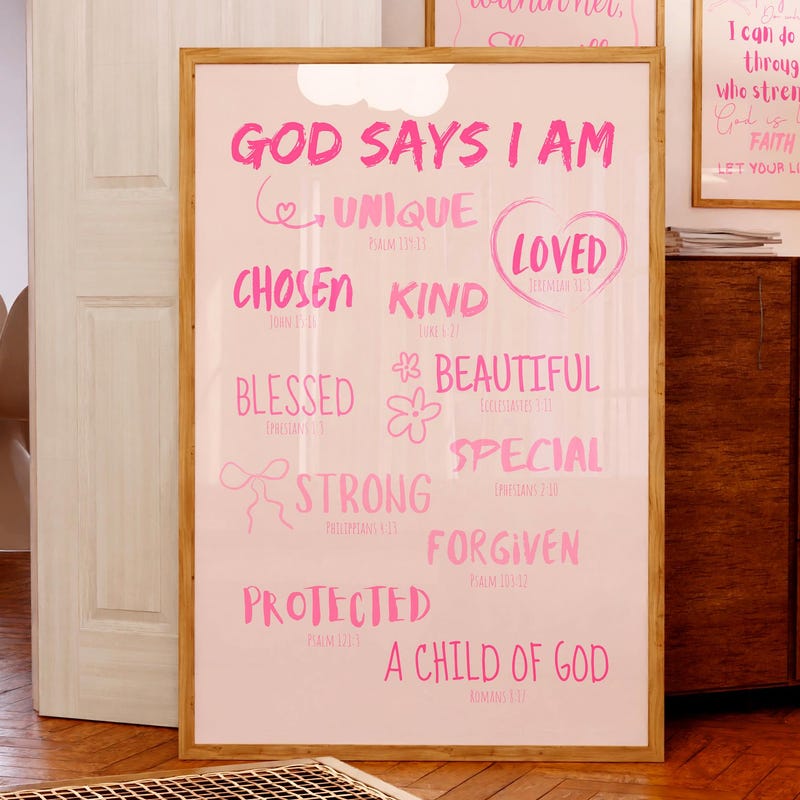 within her,
She will
Do
I can do
throug
who stren
God is
FAITH
LET YOUR LI
GOD SAYS I AM
UNIQUE
Psalm 139:13
LOVED
Jeremiah 31:3
CHOSEn
John 15:16
KIND
Luke 6:27
BEAUTIFUL
Ecclesiastes 3:11
BLESSED
Ephesians 1:3
SPECIAL
Ephesians 2:10
STRONG
Philippians 4:13
FORGiVEN
Psalm 103:12
PROTECTED
Psalm 121:3
A CHILD OF GOD
Romans 8:17